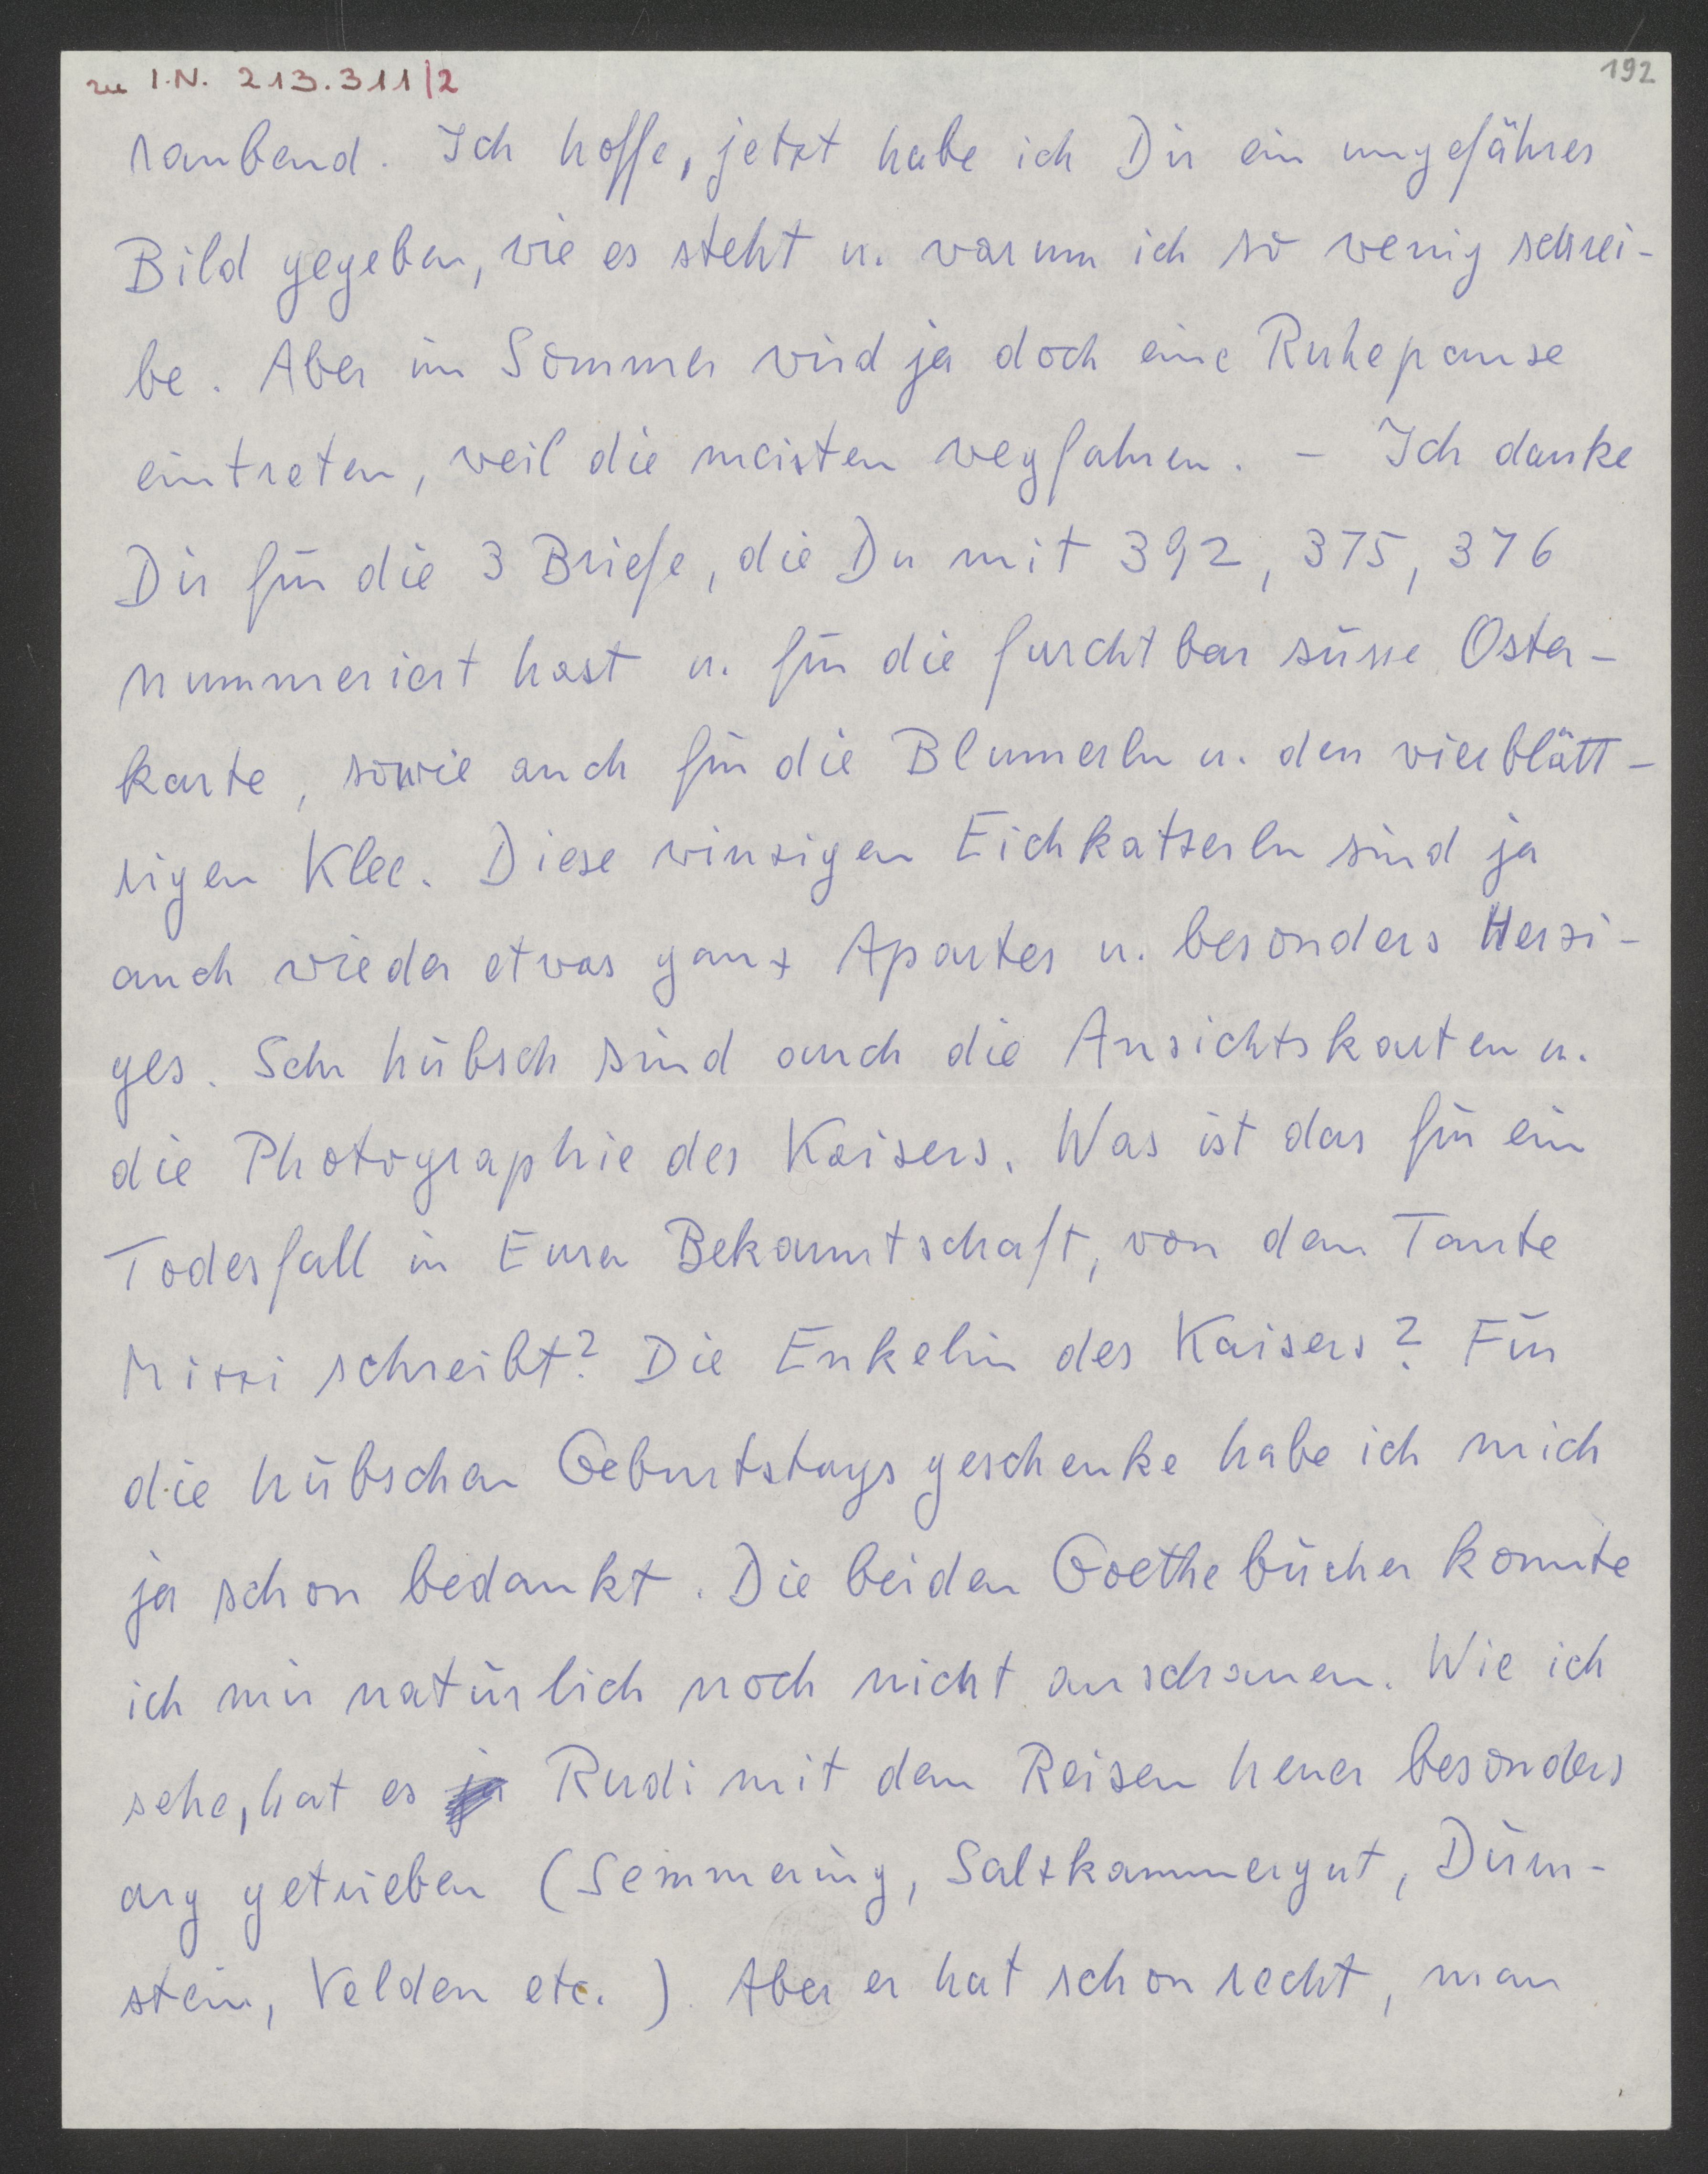 zu I.N. 213.311/2
192
raubend. Ich hoffe, jetzt habe ich Dir ein ungefähres
Bild gegeben, wie es steht u. warum ich so wenig schrei-
be. Aber im Sommer wird ja doch eine Ruhepause
eintreten, weil die meisten wegfahren. – Ich danke
Dir für die 3 Briefe, die Du mit 392, 375, 376
nummeriert hast u. für die furchtbar süsse Oster-
karte, sowie auch für die Blumerln u. den vierblätt-
rigen Klee. Diese winzigen Eichkatzerln sind ja
auch wieder etwas ganz Apartes u. besonders Herzi-
ges. Sehr hübsch sind auch die Ansichtskarten u.
die Photographie des Kaisers. Was ist das für ein
Todesfall in Eurer Bekanntschaft, von dem Tante
Mizzi schreibt? Die Enkelin des Kaisers? Für
die hübschen Geburtstagsgeschenke habe ich mich
ja schon bedankt. Die beiden Goethebücher konnte
ich mir natürlich noch nicht anschauen. Wie ich
sehe, hat es Rudi mit dem Reisen heuer besonders
arg getrieben (Semmering, Salzkammergut, Dürn-
stein, Velden etc.) Aber er hat schon recht, man